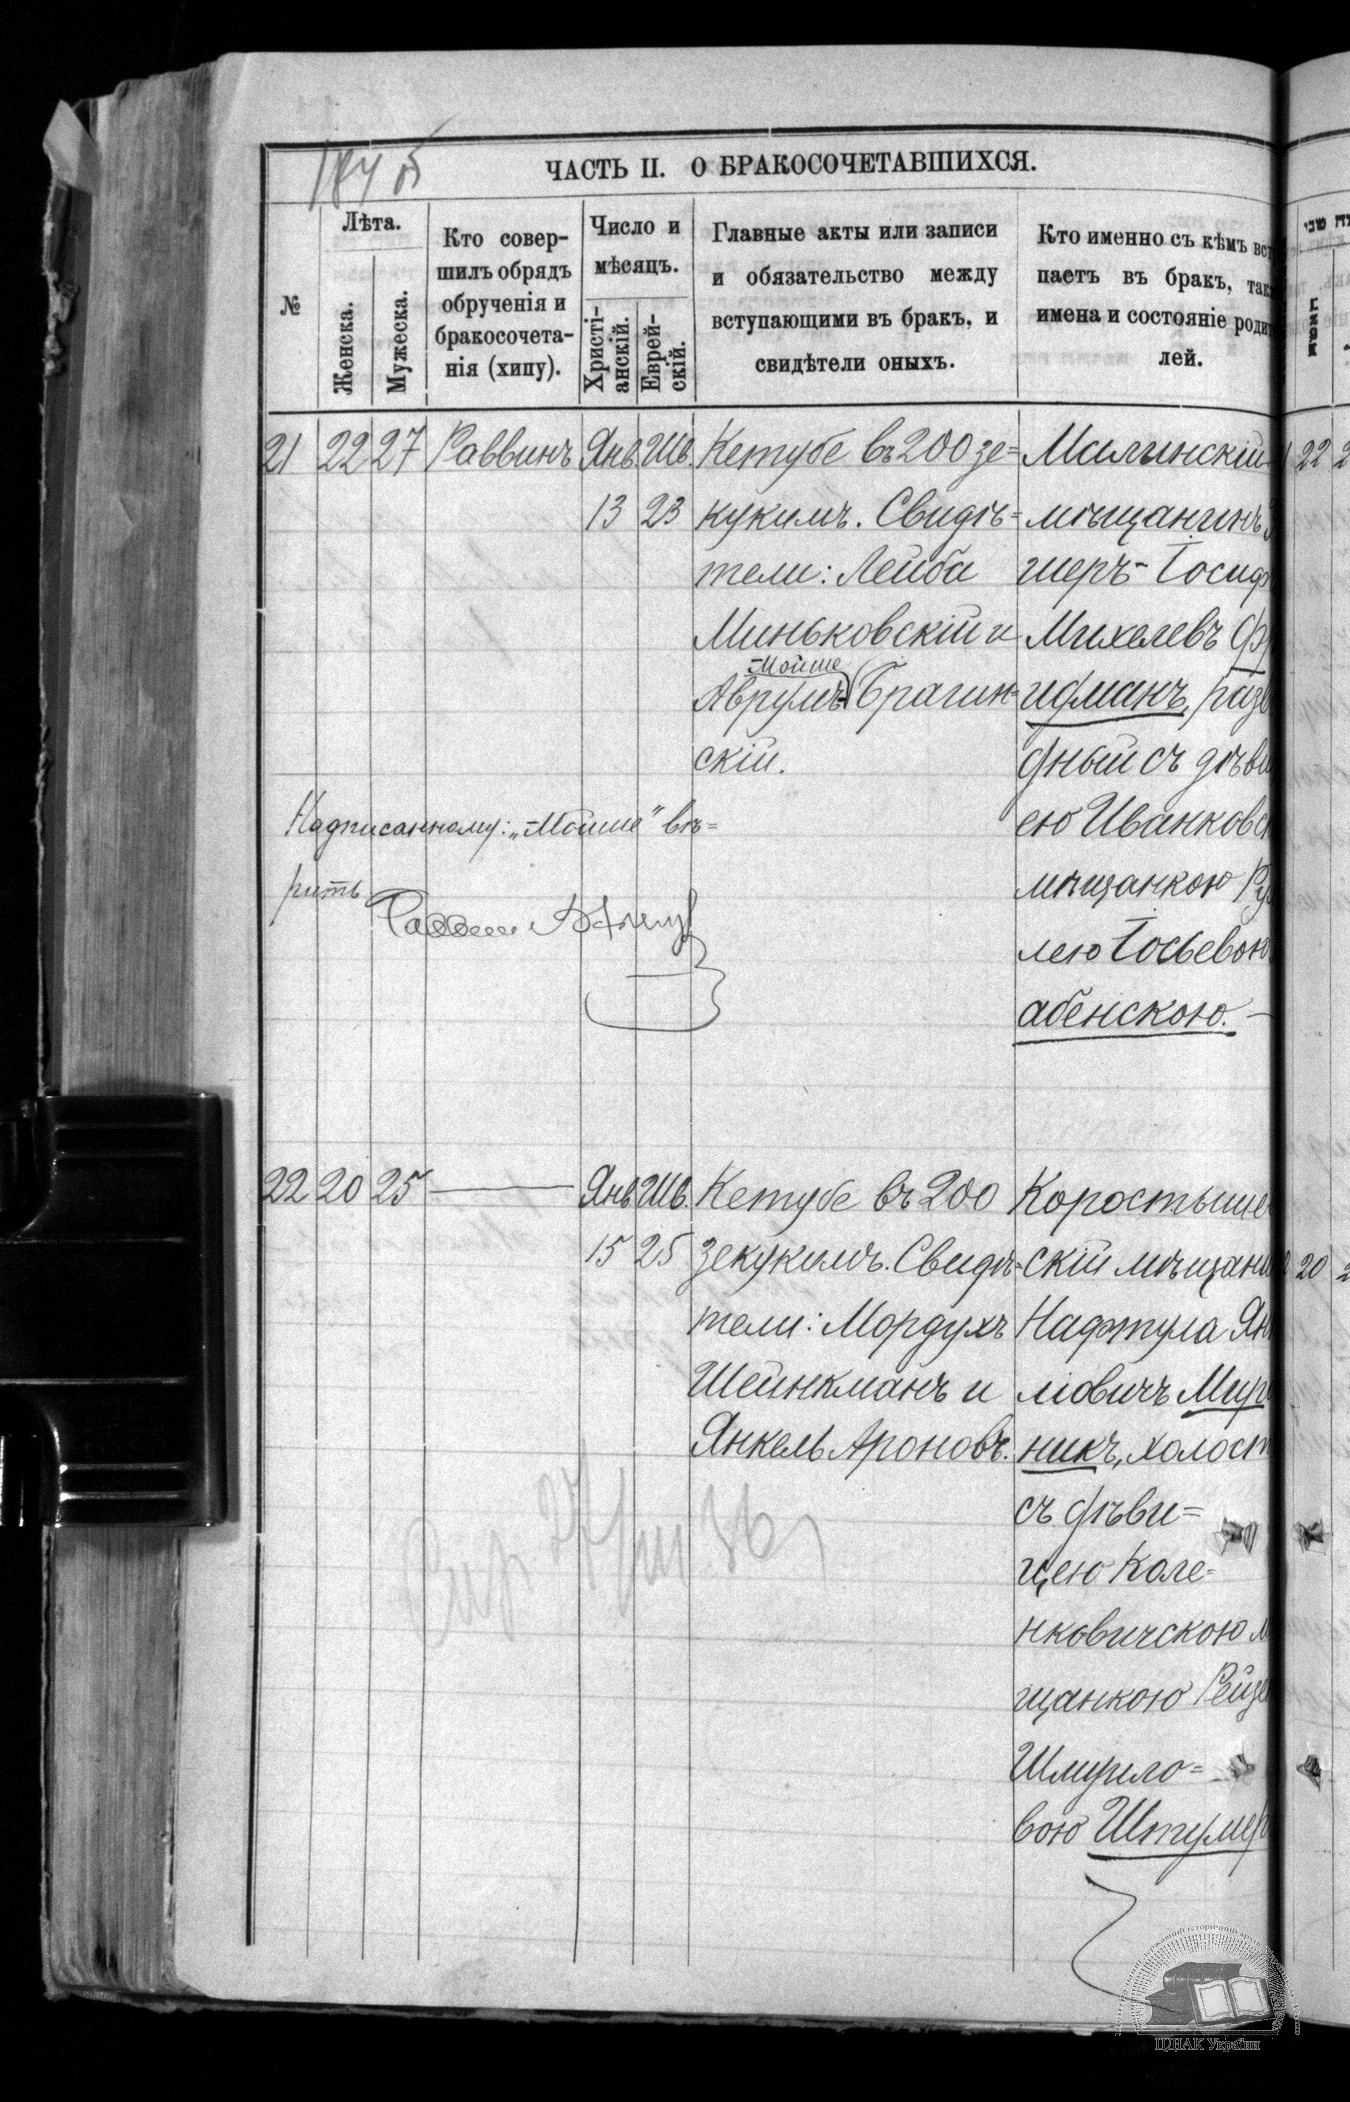 184 об
ЧАСТЬ II. О БРАКОСОЧЕТАВШИХСЯ.
№
Лѣта.
Женска.
Мужеска.
Кто совер-
шилъ обрядъ
обрученія и
бракосочета-
нія (хипу).
Число и
мѣсяцъ.
Христі-
анскій.
Еврей-
скій.
Главные акты или записи
и обязательство между
вступающими въ бракъ, и
свидѣтели оныхъ.
Кто именно съ кѣмъ вст
паетъ въ бракъ, так
имена и состояніе родит
лей.
21 22 27 Раввинъ Янв. Шв.
13 23
Кетубе въ 200 зе=
кукимъ. Свидѣ=
тели: Лейба
Миньковскій и
Мойше
Аврумъ Брагин=
скій.
мѣщанинъ
шеръ-Іосиф
Михелевъ Фр
идманъ, разв
дный съ дѣви
ею Иванковс
мѣщанкою Ру
лею Іосьевою
абенскою.
Надписанному: „Мойше" вѣ=
рить
Раввин
22 20 25 — Янв Шв.
15 25
Кетубе въ 200
зекукимъ. Свидѣ=
тели: Мордухъ
Шейнкманъ и
Янкель Ароновъ.
Коростыше
скій мѣщани
Нафтула Ян
ліовичъ Мир
никъ, холост
съ дѣви=
цею Кале=
нковичскою м
щанкою Рейзе
Шмуило=
вою Штумер
22
20
ЦДІАК України